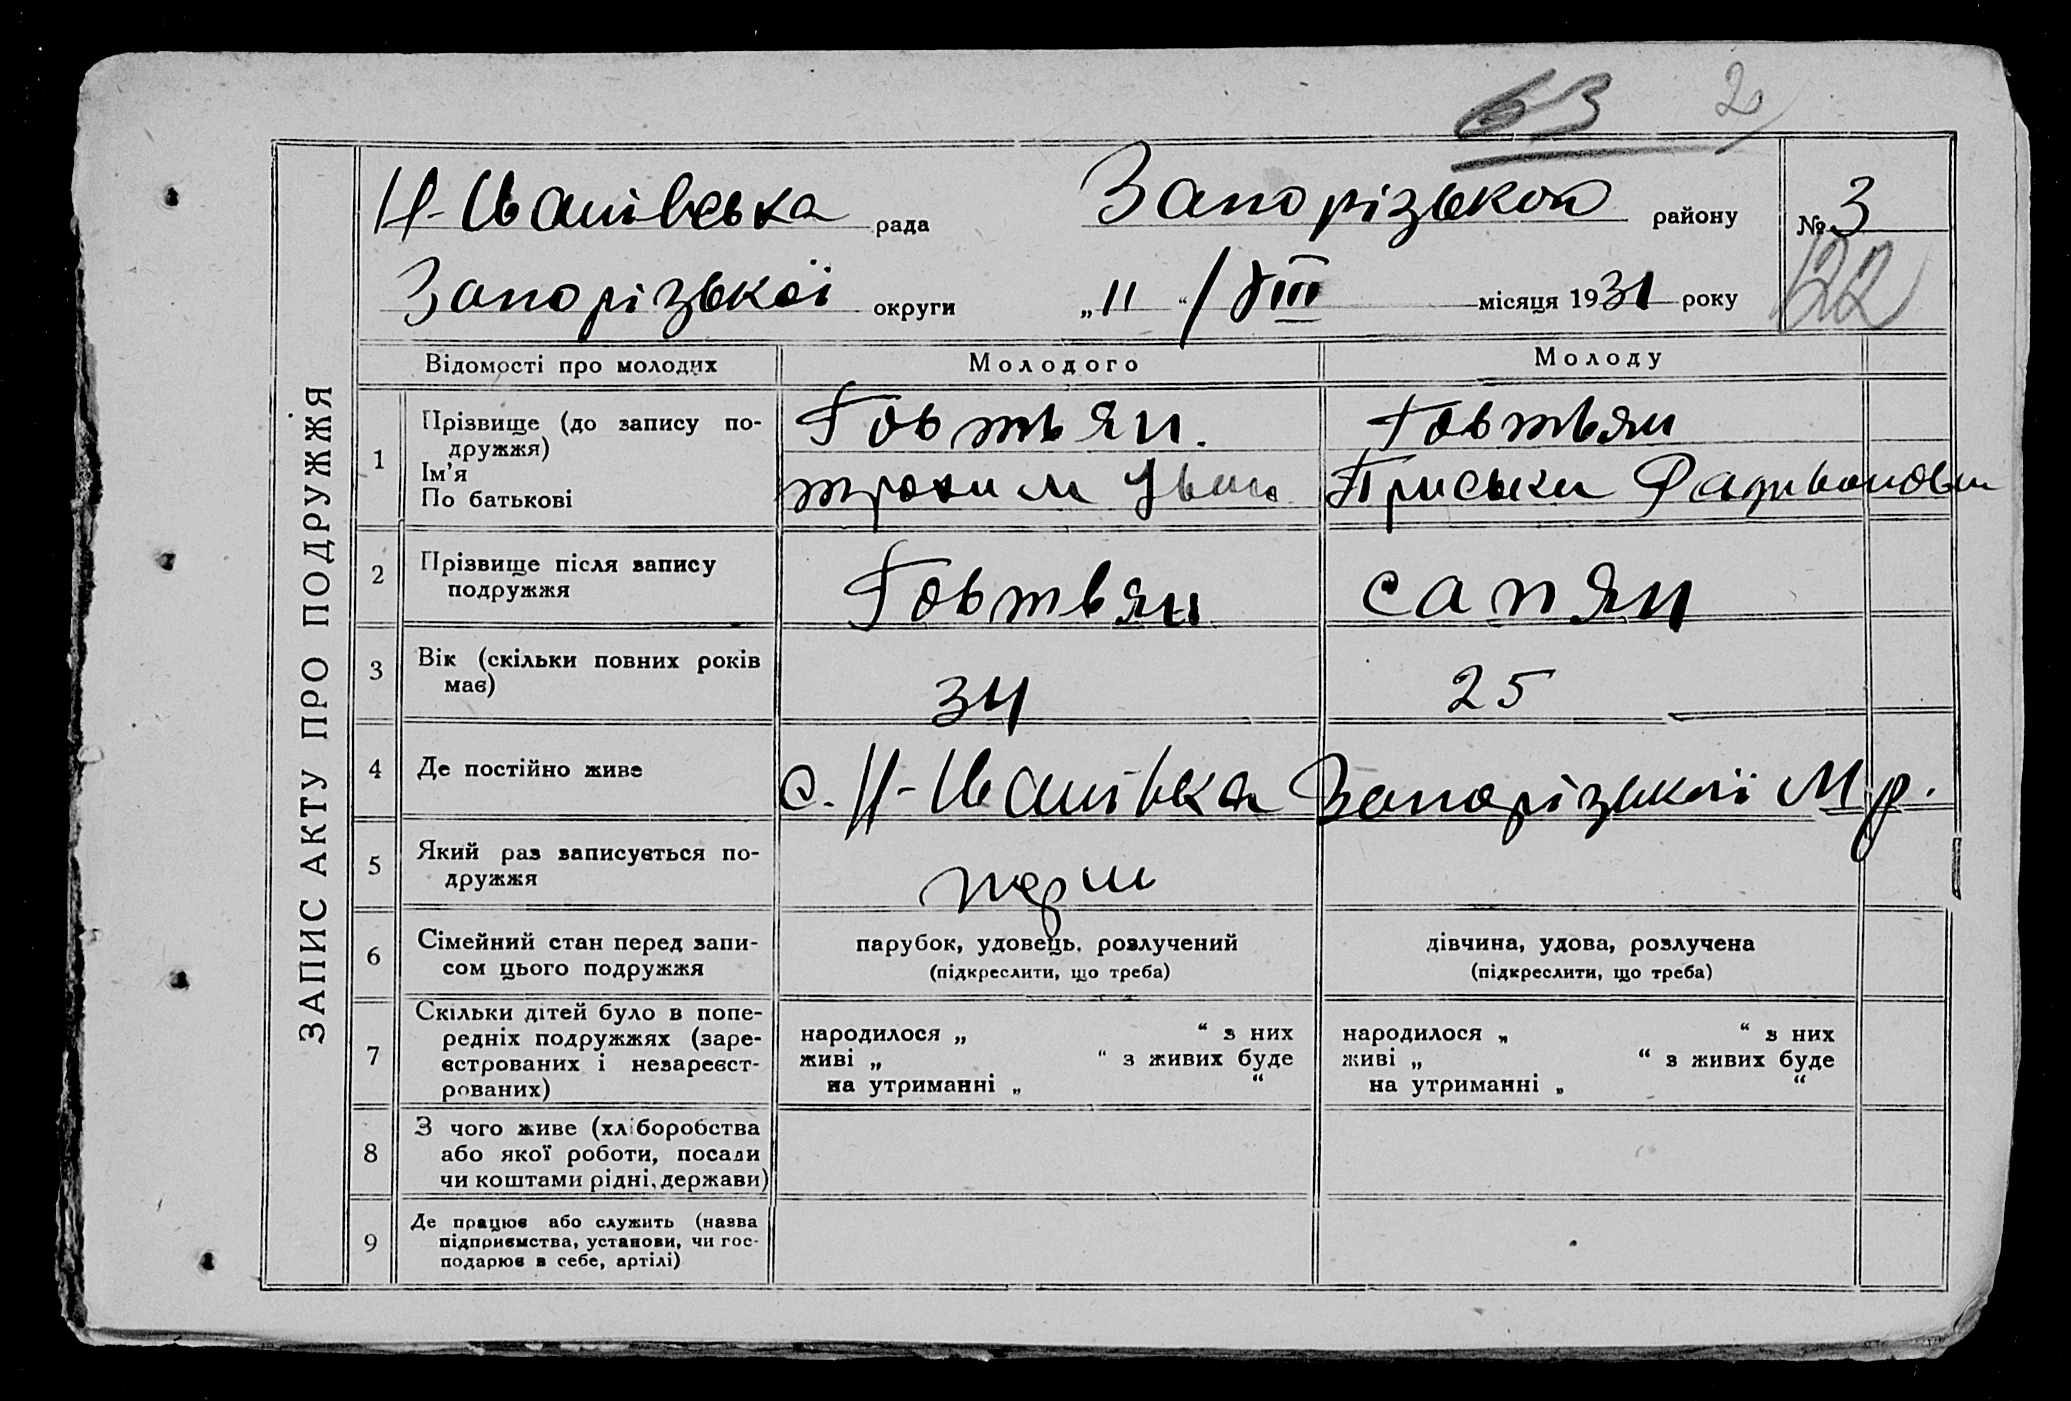 63 2
ЗАПИС АКТУ ПРО ПОДРУЖЖЯ
Н-Іванівська рада Запорізького району № 3
Запорізької округи „ 11 “ / VIII місяця 1931 року 122
Відомості про молодих Молодого Молоду
1 Прізвище (до запису по-
дружжя)
Ім’я
По батькові
Говтвян. Говтвян
трохим Іван Приськи
2 Прізвище після запису
подружжя
Говтвян сапян
3 Вік (скільки повних років
має)
34 25
4 Де постійно живе с. Н-Іванівка Запорізької М р.
5 Який раз записується по-
дружжя
перш
6 Сімейний стан перед запи-
сом цього подружжя
парубок, удовець, розлучений
(підкреслити, що треба)
дівчина, удова, розлучена
(підкреслити, що треба)
7 Скільки дітей було в попе-
редніх подружжях (заре-
єстрованих і незареєст-
рованих)
народилося „ “ з них
живі „ “ з живих буде
на утриманні „ “
народилося „ “ з них
живі „ “ з живих буде
на утриманні „ “
8 З чого живе (хліборобства
або якої роботи, посади
чи коштами рідні, держави)
9 Де працює або служить (назва
підприємства, установи, чи гос-
подарює в себе, артілі)